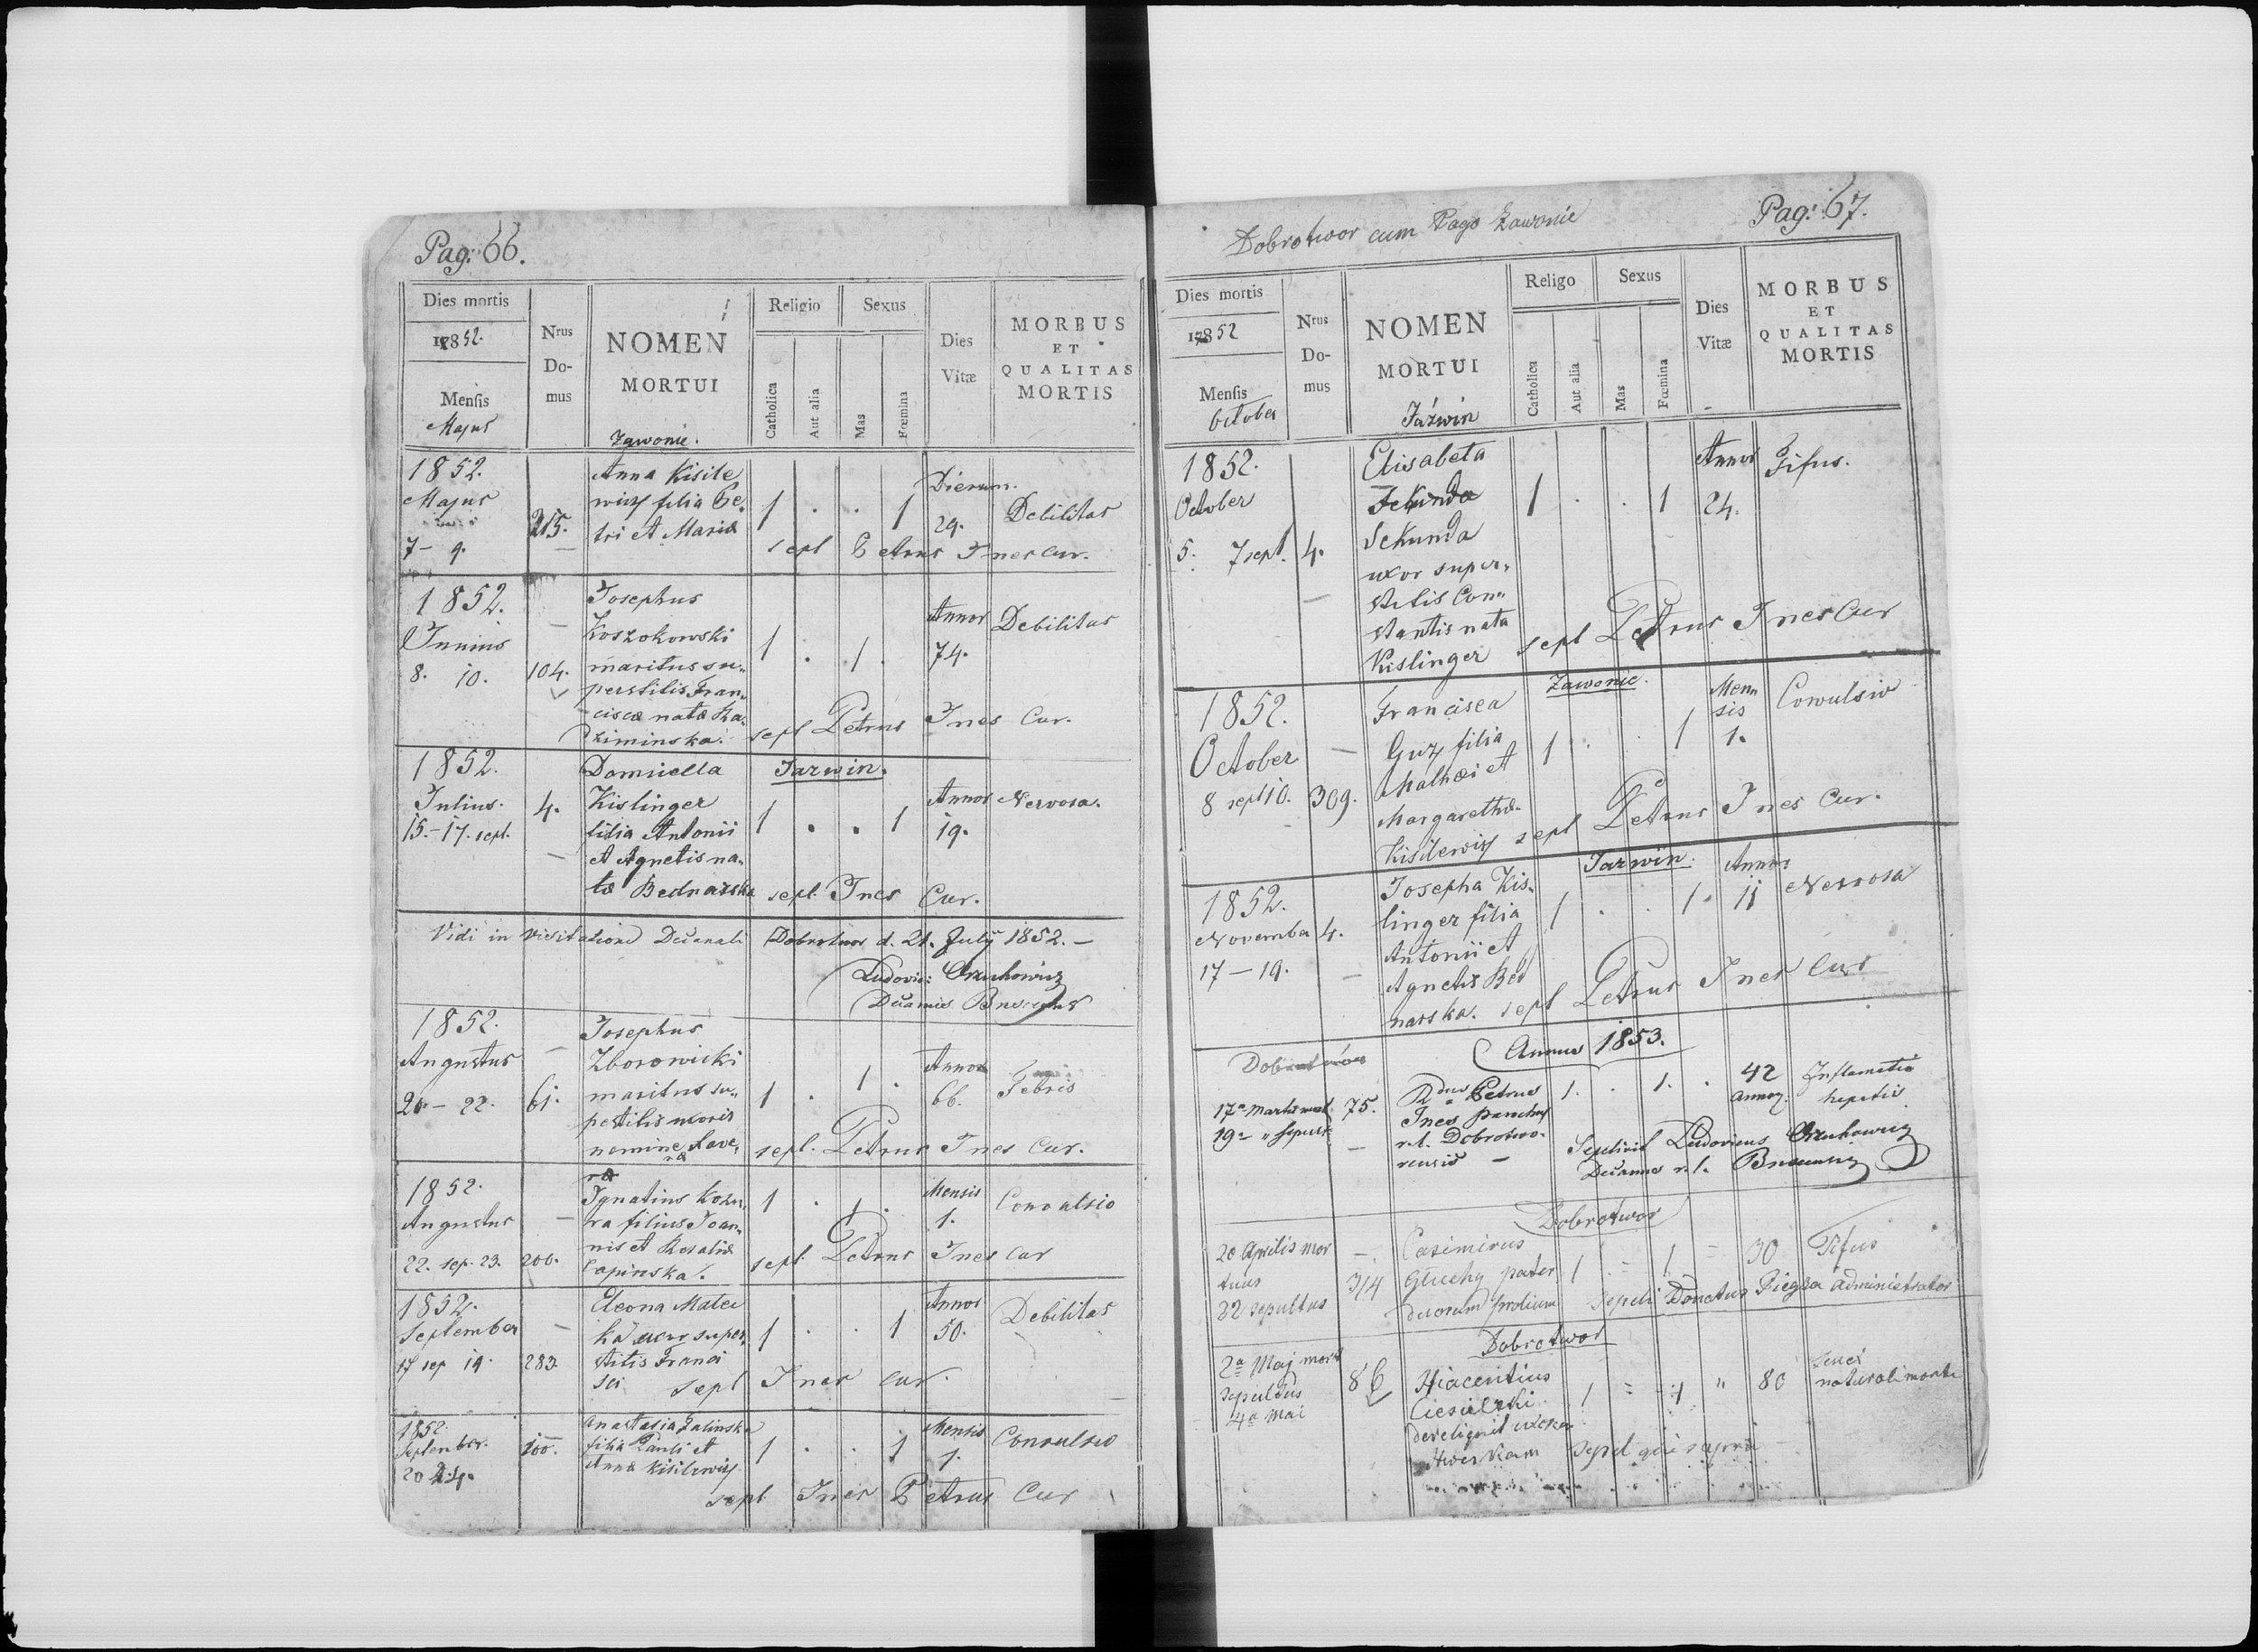 Pag: 66.
Dies mortis
1852.
Mensis
Majus
Nrus
Do-
mus
NOMEN
MORTUI
Zawonie.
Religio
Catholica
Aut alia
Sexus
Mas
Fœmina
Dies
Vitæ
MORBUS
ET
QUALITAS
MORTIS
1852.
Majus
7 - 9.
215.
Anna Kisile
wicz filia Pe,
tri et Mariæ
1 . . 1
Dierum.
29.
Debilitas
sepl Petrus Ines Cur.
1852.
Junius
8. 10.
104.
Josephus
Koszokowski
maritus su,,
perstitis Fran,,
ciscæ natæ Ra,
ziminska.
1 . 1 .
Annor
74.
Debilitas
sepl Petrus Ines Cur.
1852.
Julius.
15. - 17. sept.
4.
Domicella
Kislinger
filia Antonii
et Agnetis na,
tæ Bednarska
Jazwin.
1 . . 1
Annor
19.
Nervosa.
sepl. Ines Cur.
Vidi in visitatione Decanali Dobrotwor d. 21. July 1852. -
Ludovic: Orzechowicz
Decanus
1852.
Augustus
20 - 22.
61.
Josephus
Zborowicki
maritus su,,
pestitis uxoris
nomine Xave,
ræ
1 . 1 .
Annor
66.
Febris
sepl. Petrus Ines Cur.
1852.
Augustus
22. sep. 23.
200.
Ignatius Kozu,
ra filius Joan,,
nis et Rosaliæ
Lapinska.
1 . 1 .
Mensis
1.
Convulsio
sepl Petrus Ines Cur
1852.
September
17 sep 19.
283
Eleona Matec
ka uxor super,
stitis Franci
sci
1 . . 1
Annor
50.
Debilitas
sepl Ines Cur.
1852.
September.
20
100.
Anastasia Zalinska
filia Pauli et
Annæ Kisilewicz
1 . . 1
Mensis
1.
Convulsio
sepl Ines Petrus Cur
Dobrotwor cum Pago Zawonie
Pag: 67.
Dies mortis
1852
Mensis
October
Nrus
Do-
mus
NOMEN
MORTUI
Jázwin
Religo
Catholica
Aut alia
Sexus
Mas
Fœmina
Dies
Vitæ
MORBUS
ET
QUALITAS
MORTIS
1852.
October
5. 7 sept.
4.
Elisabeta
Sekunda
uxor super,
stitis Con,,
stantis nata
Kislinger
1 . . 1
Annor
24.
Tifus.
sepl Petrus Ines Cur
1852.
October
8 sept 10.
309.
Francisca
Guz filia
Mathæi et
Margarethæ
Kisilewicz
Zawonie.
1 . . 1
Men,,
sis
1.
Convulsio
sepl Petrus Ines Cur.
1852.
November
17 - 19.
4.
Josepha Kis,
linger filia
Antonii et
Agnetis Bed
narska.
Jazwin.
1 . . 1.
Annor
11
Nervosa
sepl Petrus Ines Cur
Annus 1853.
Dobrotwor
17a Martii mort
19a " sepult
75.
Rdus Petrus
Ines Parochus
r. l. Dobrotwo-
rensis -
1. . 1. .
42
annor.
Inflamatio
hepatis
Sepelivit Ludovicus Orzechowicz
Decanus r. l.
Dobrotwor
20 Aprilis mor
tuus
22 sepultus
314
Casimirus
Głuchy pater
duorum prolium
1 = 1 =
30
Tifus
Sepeli Donatus Piegza Administrator
Dobrotwor
2a Maj mort
sepultus
4a Mai
86
Hiacentius
Ciesielski
dereliquit uxorem
1 = 1 "
80
senex
naturali morte
sepel qui supra